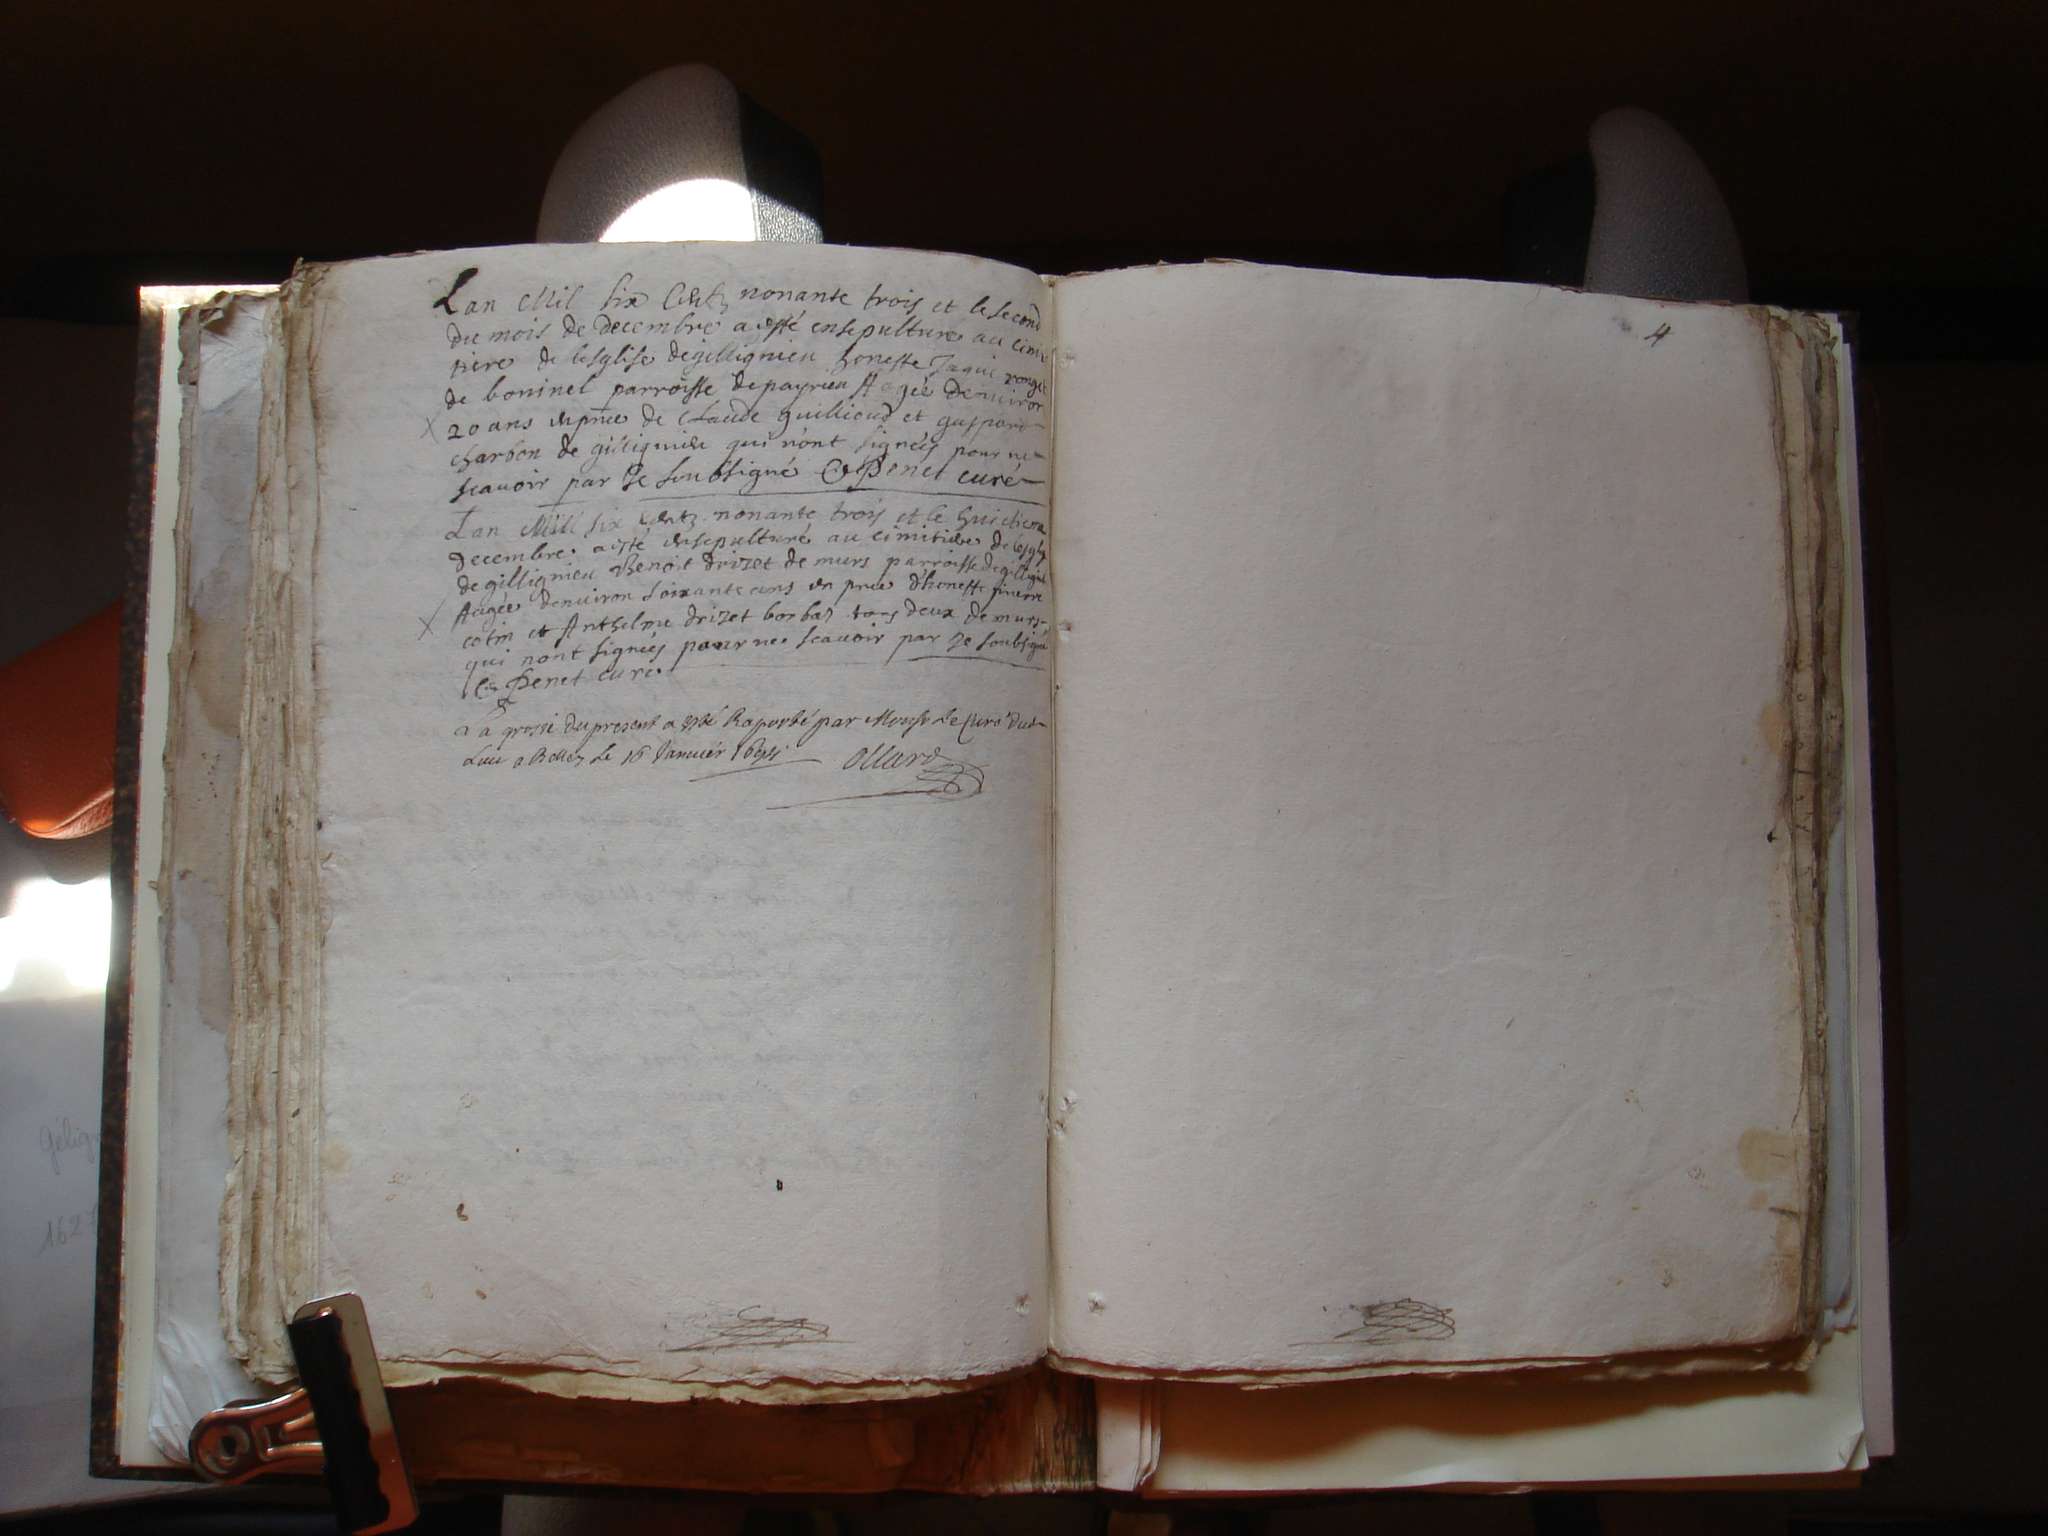 Lan Mil six Centz nonante trois et le second
du mois de decembre a esté ensepulture au cimi
tiere de lesglise de gillignieu honeste Jaqui
de boninel parroisse de payrieu Aagée denuiron
20 ans en pnce de Claude guillioud et gaspard
charbon de gillignieu qui n'ont signées pour ne
scauoir par Je soubsigné Penet curé
Lan Mill six Centz nonante trois et le huictiem
decembre a esté ensepulturé au cimitiere de lesglise
de gillignieu Benoit drizet de murs parroisse de gilligni
Aagée denuiron soixante ans en pnce d'honeste pierre
cotin et Anthelme drizet borbaz tous deux de murs
qui nont signées pour ne scauoir par Je soubsigné
Penet curé
La grosse du present a esté Raporté par Monsr le Curé dud
Lieu a Belley le 16 Januier
ollard
4
Gélign
1627